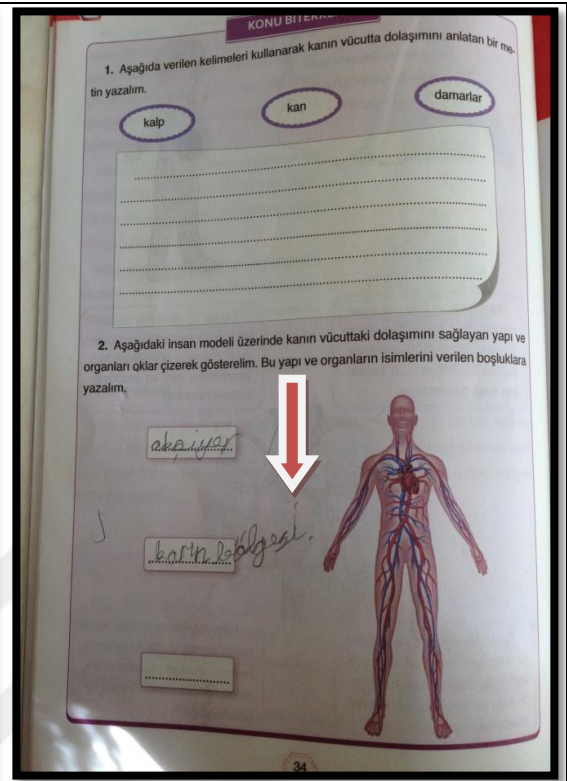 KONU BİTERKEN
1. Aşağıda verilen kelimeleri kullanarak kanın vücutta dolaşımını anlatan bir me-
tin yazalım.
kalp
kan
damarlar
2. Aşağıdaki insan modeli üzerinde kanın vücuttaki dolaşımını sağlayan yapı ve
organları oklar çizerek gösterelim. Bu yapı ve organların isimlerini verilen boşluklara
yazalım.
akciyer
karın bölgesi.
34